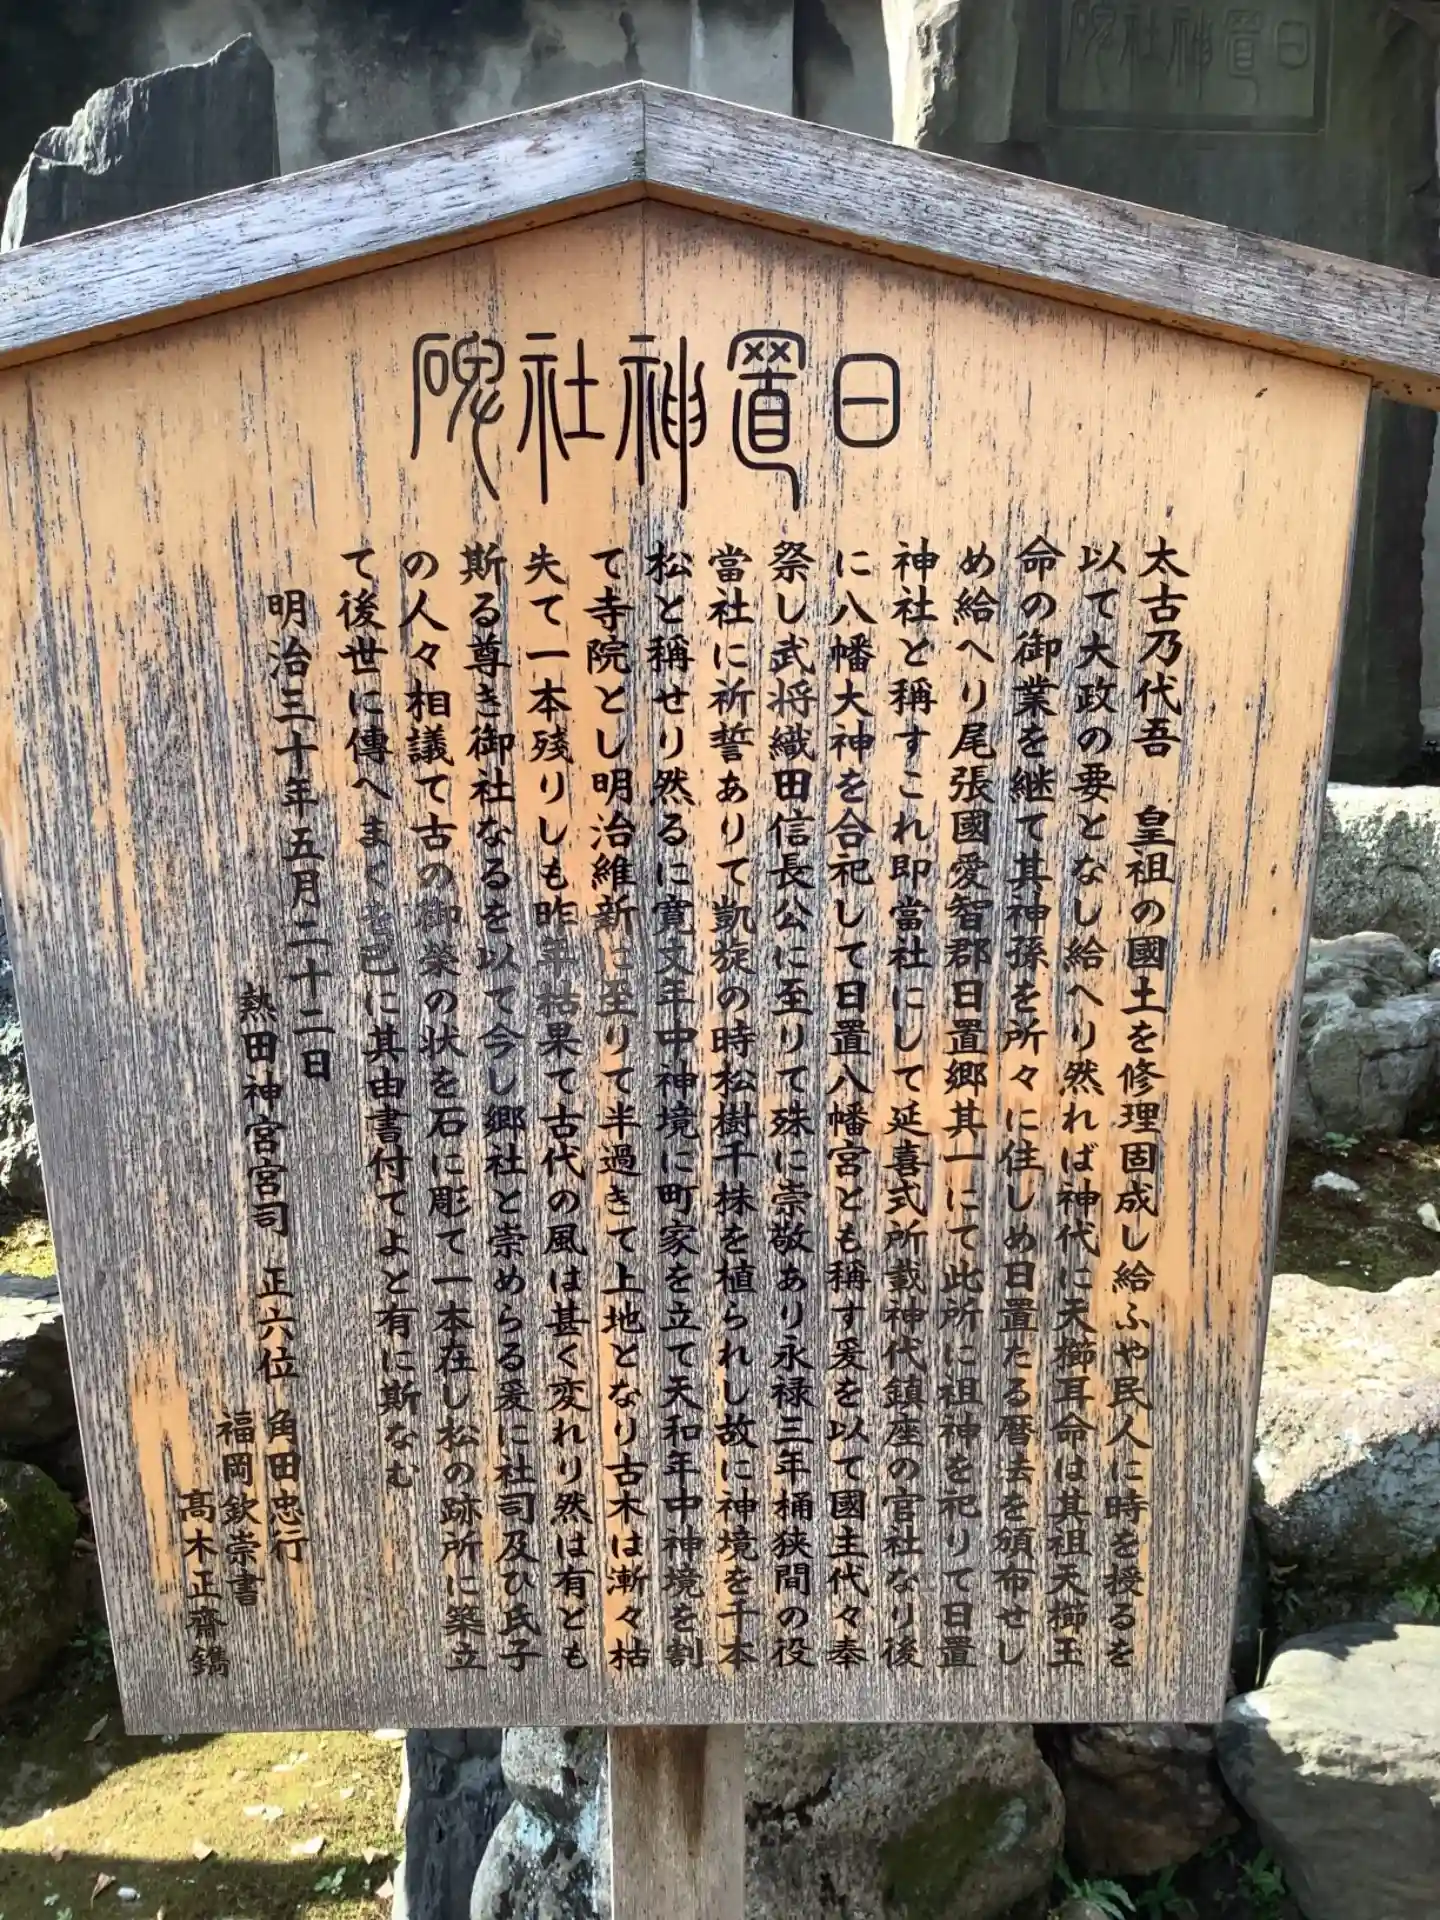 日置神社碑
太古乃代吾　皇祖の國土を修理固成し給ふや民人に時を授るを
以て大政の要となし給へり然れば神代に天櫛耳命は其祖天櫛玉
命の御業を継て其神孫を所々に住しめ日置たる暦法を頒布せし
め給へり尾張國愛智郡日置郷其一にて此所に祖神を祀りて日置
神社と稱すこれ即當社にして延喜式所載神代鎮座の官社なり後
に八幡大神を合祀して日置八幡宮とも稱す爰を以て國主代々奉
祭し武将織田信長公に至りて殊に崇敬あり永禄三年桶狭間の役
當社に祈誓ありて凱旋の時松樹千株を植られし故に神境を千本
松と稱せり然るに寛文年中神境に町家を立て天和年中神境を割
て寺院とし明治維新に至りて半過きて上地となり古木は漸々枯
失て一本残りしも昨年枯果て古代の風は甚く変れり然は有とも
斯る尊き御社なるを以て今し郷社と崇めらる爰に社司及ひ氏子
の人々相議て古の御榮の状を石に彫て一本在し松の跡所に築立
て後世に傳へまくを己に其由書付てよと有に斯なむ
明治三十年五月二十二日
熱田神宮宮司　正六位　角田忠行
福岡欽崇書
髙木正齋鐫
日置神社碑